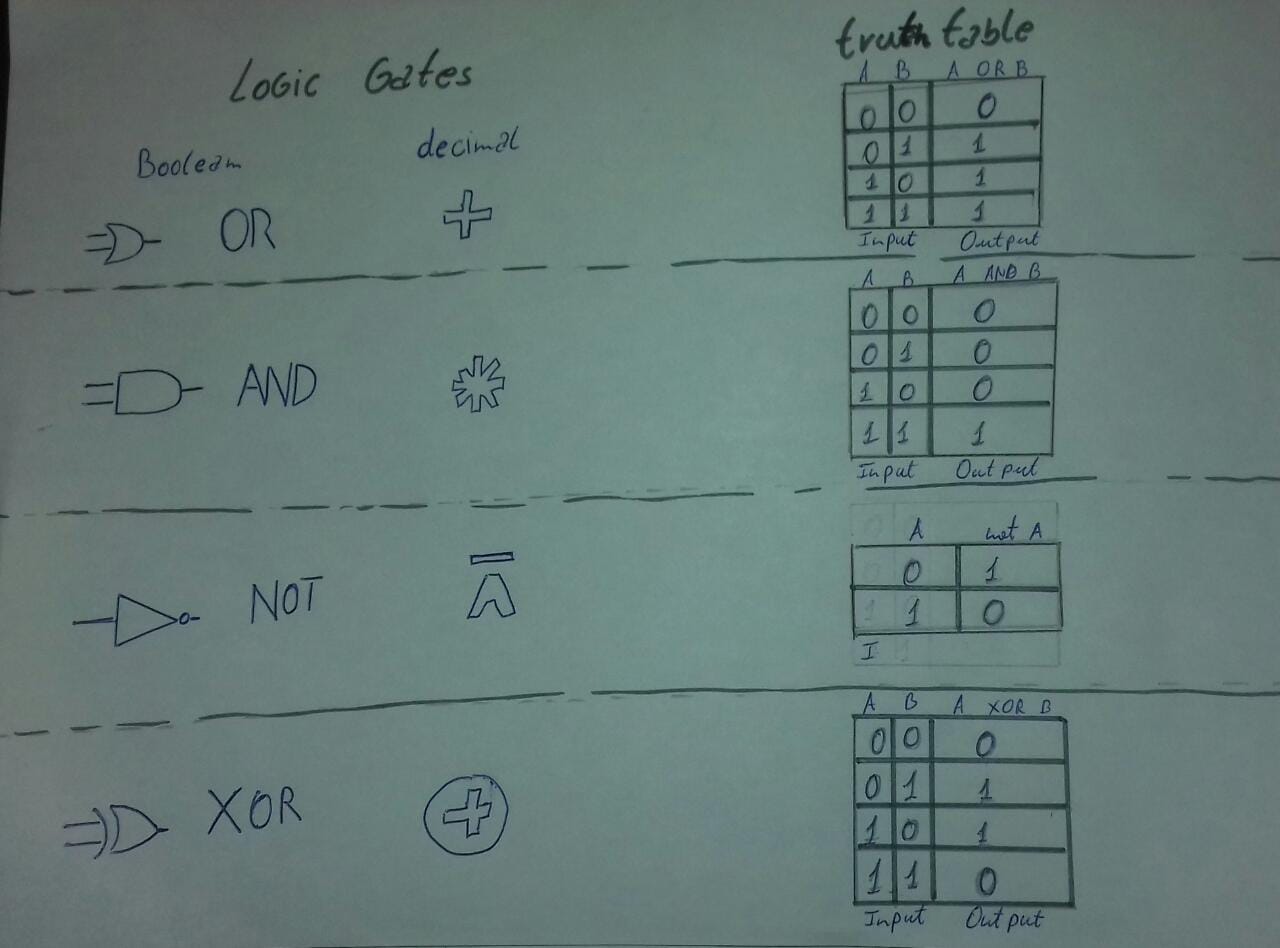 Logic Gates
truth table
Boolean decimal
A B A OR B
0 0 0
0 1 1
1 0 1
1 1 1
Input Output
OR +
A B A AND B
0 0 0
0 1 0
1 0 0
1 1 1
Input Output
AND *
A not A
0 1
1 0
I
NOT Ā
A B A XOR B
0 0 0
0 1 1
1 0 1
1 1 0
Input Output
XOR ⊕